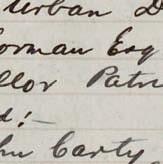 Urban D
orman Esq
llor Patri
d:—
hn Carty